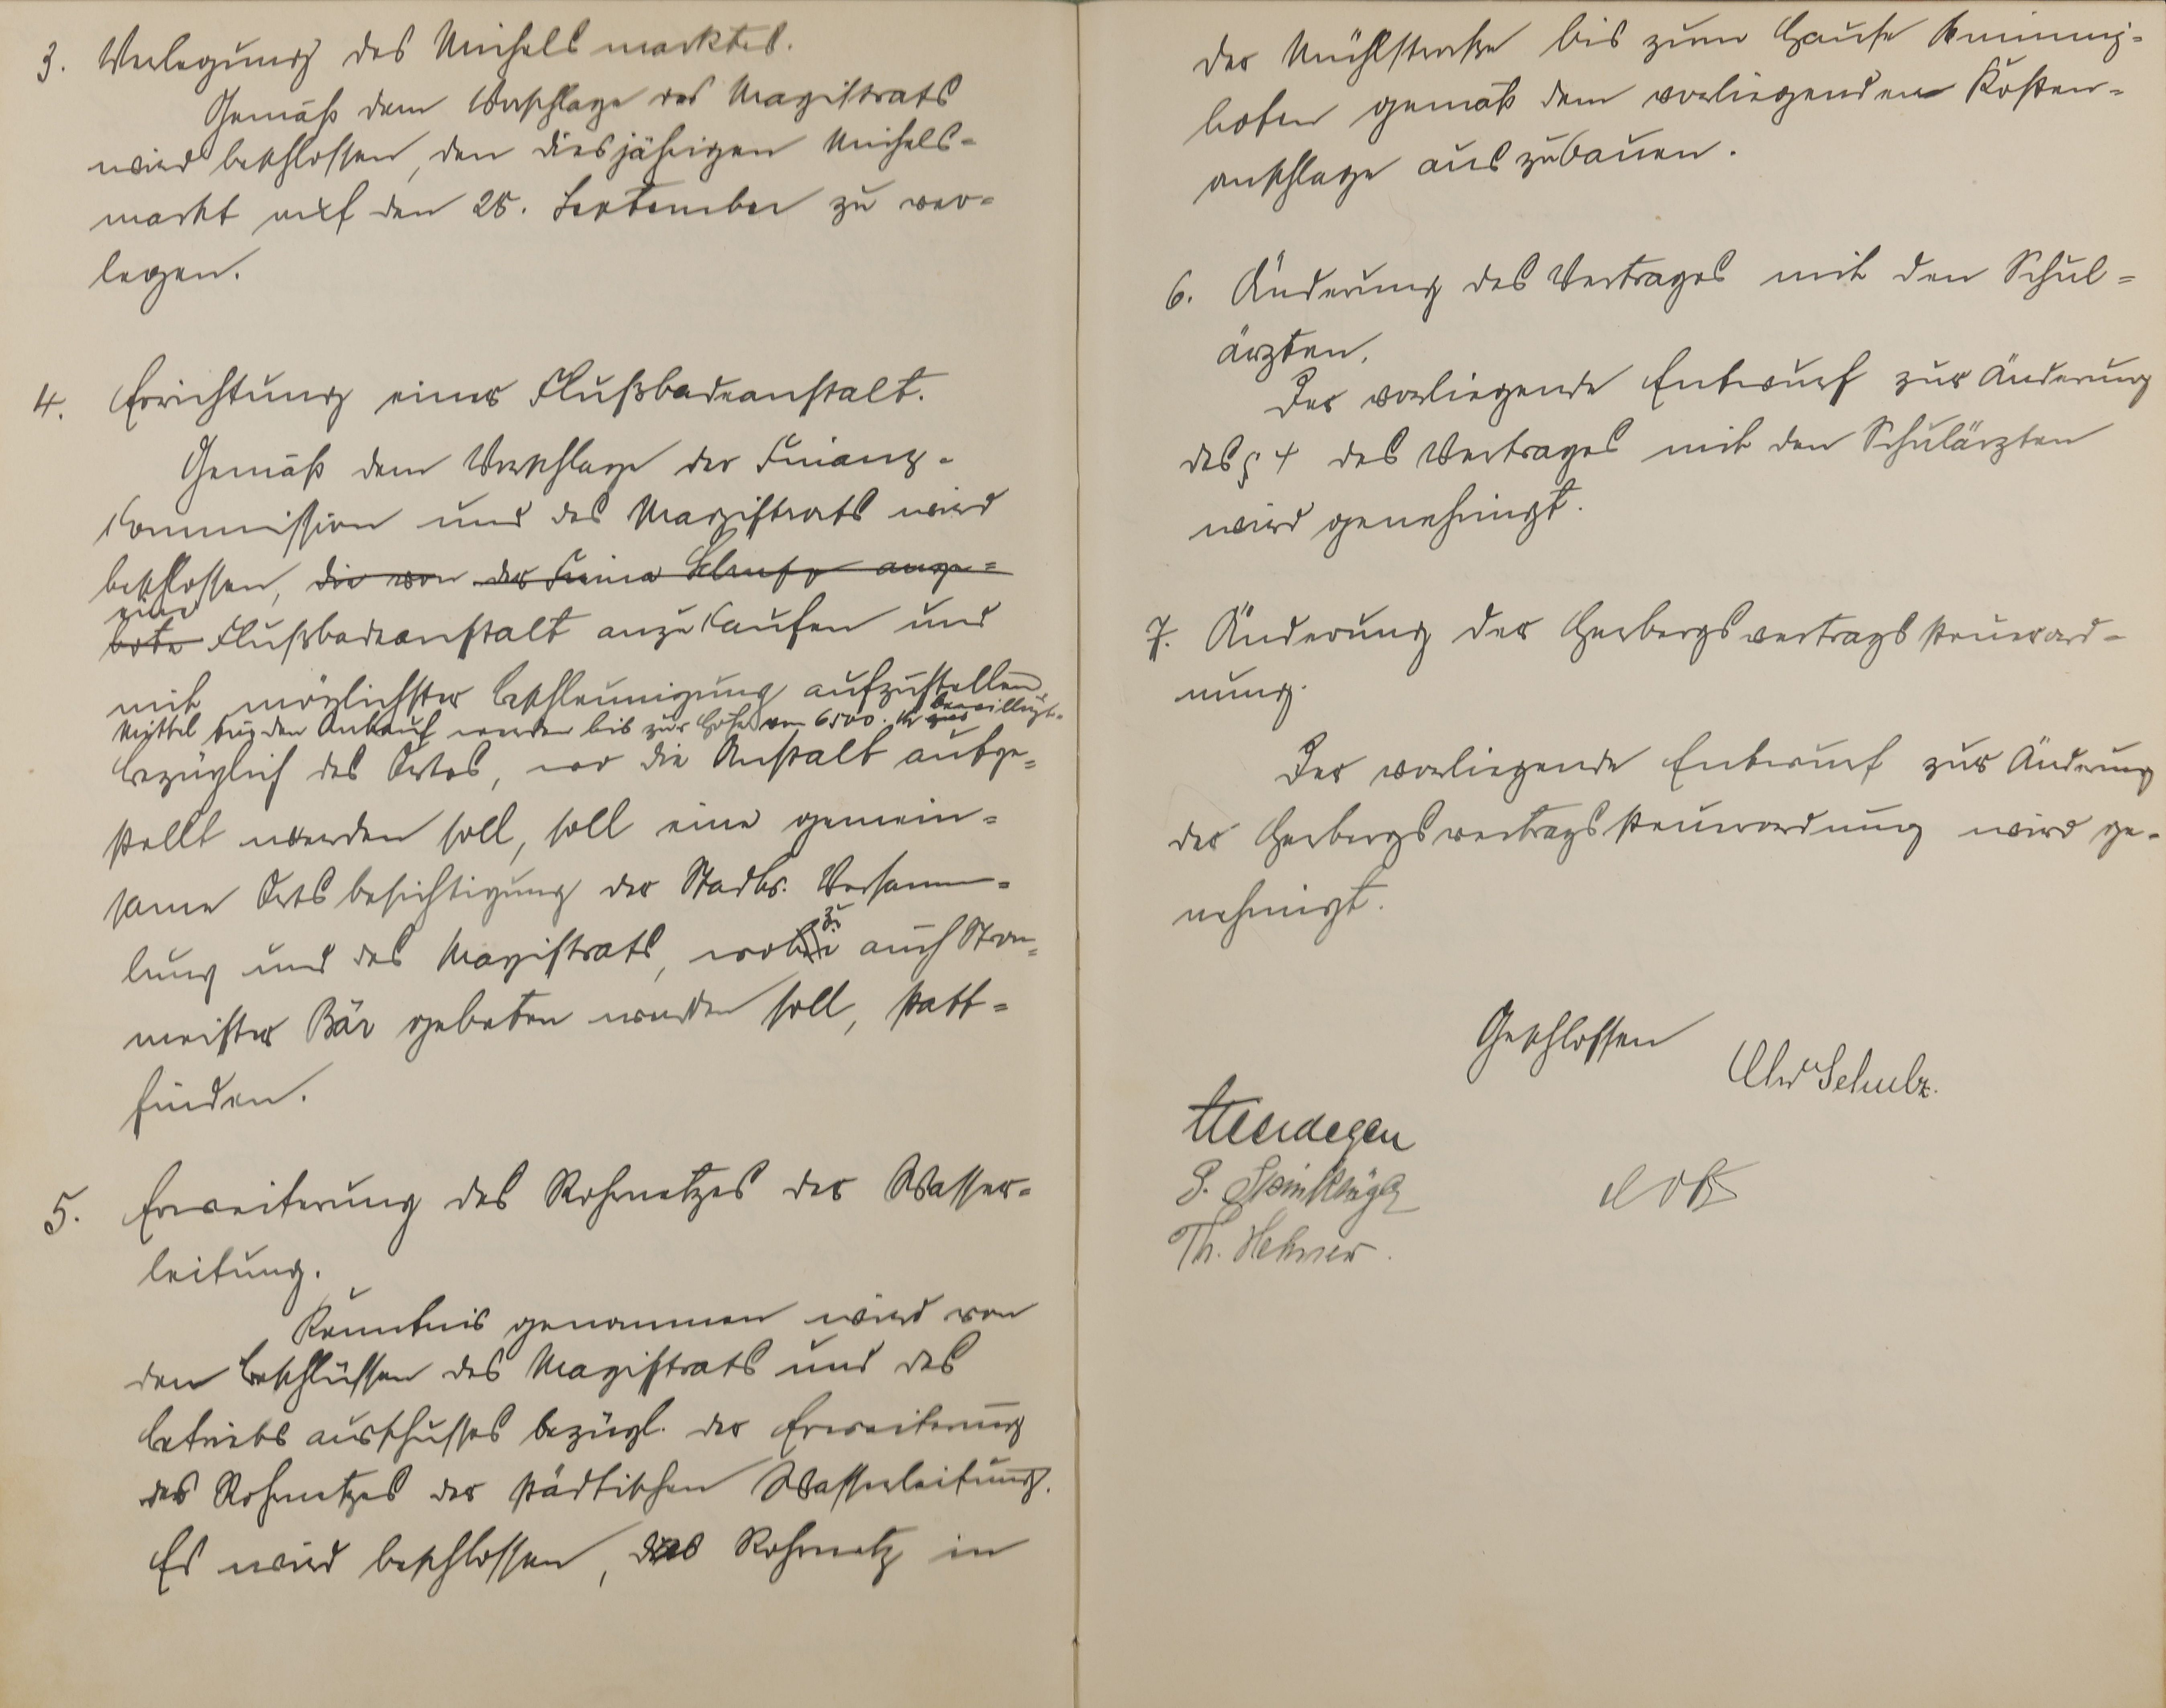 3. Verlegung des Michelsmarktes.
Gemäß dem Vorschlage des Magistrats
wird beschlossen, den diesjährigen Michels-
markt auf den 25. September zu ver-
legen.
4. Errichtung einer Flußbadeanstalt.
Gemäß dem Vorschlage der Finanz-
kommission und des Magistrats wird
beschlossen, die von der Firma ange-
bote eine Flußbadeanstalt anzukaufen und
mit möglichster Beschleunigung aufzustellen
Mittel für den Ankauf werden bis zur Höhe von 6500. M bewilligt.
Bezüglich des Ortes, wo die Anstalt aufge-
stellt werden soll, soll eine gemein-
same Ortsbesichtigung der Stadtv. Versamm-
lung und des Magistrats, wozu auch Strom-
meister Bär gebeten werden soll, statt-
finden.
5. Erweiterung des Rohrnetzes der Wasser-
leitung.
Kenntnis genommen wird von
den Beschlüssen des Magistrats und des
Betriebsausschusses bezügl. der Erweiterung
des Rohrnetzes der städtischen Wasserleitung.
Es wird beschlossen, das Rohrnetz in
der Mühlstraße bis zum Hause
gemäß dem vorliegenden Kosten-
anschlage auszubauen.
6. Änderung des Vertrages mit den Schul-
ärzten.
Der vorliegende Entwurf zur Änderung
des § 4 des Vertrages mit den Schulärzten
wird genehmigt.
7. Änderung der Herbergsvertragssteuerord-
nung.
Der vorliegende Entwurf zur Änderung
der Herbergsvertragssteuerordnung wird ge-
nehmigt.
Geschlossen
Chr Schulz.
Herdegen
Th. Hehner.